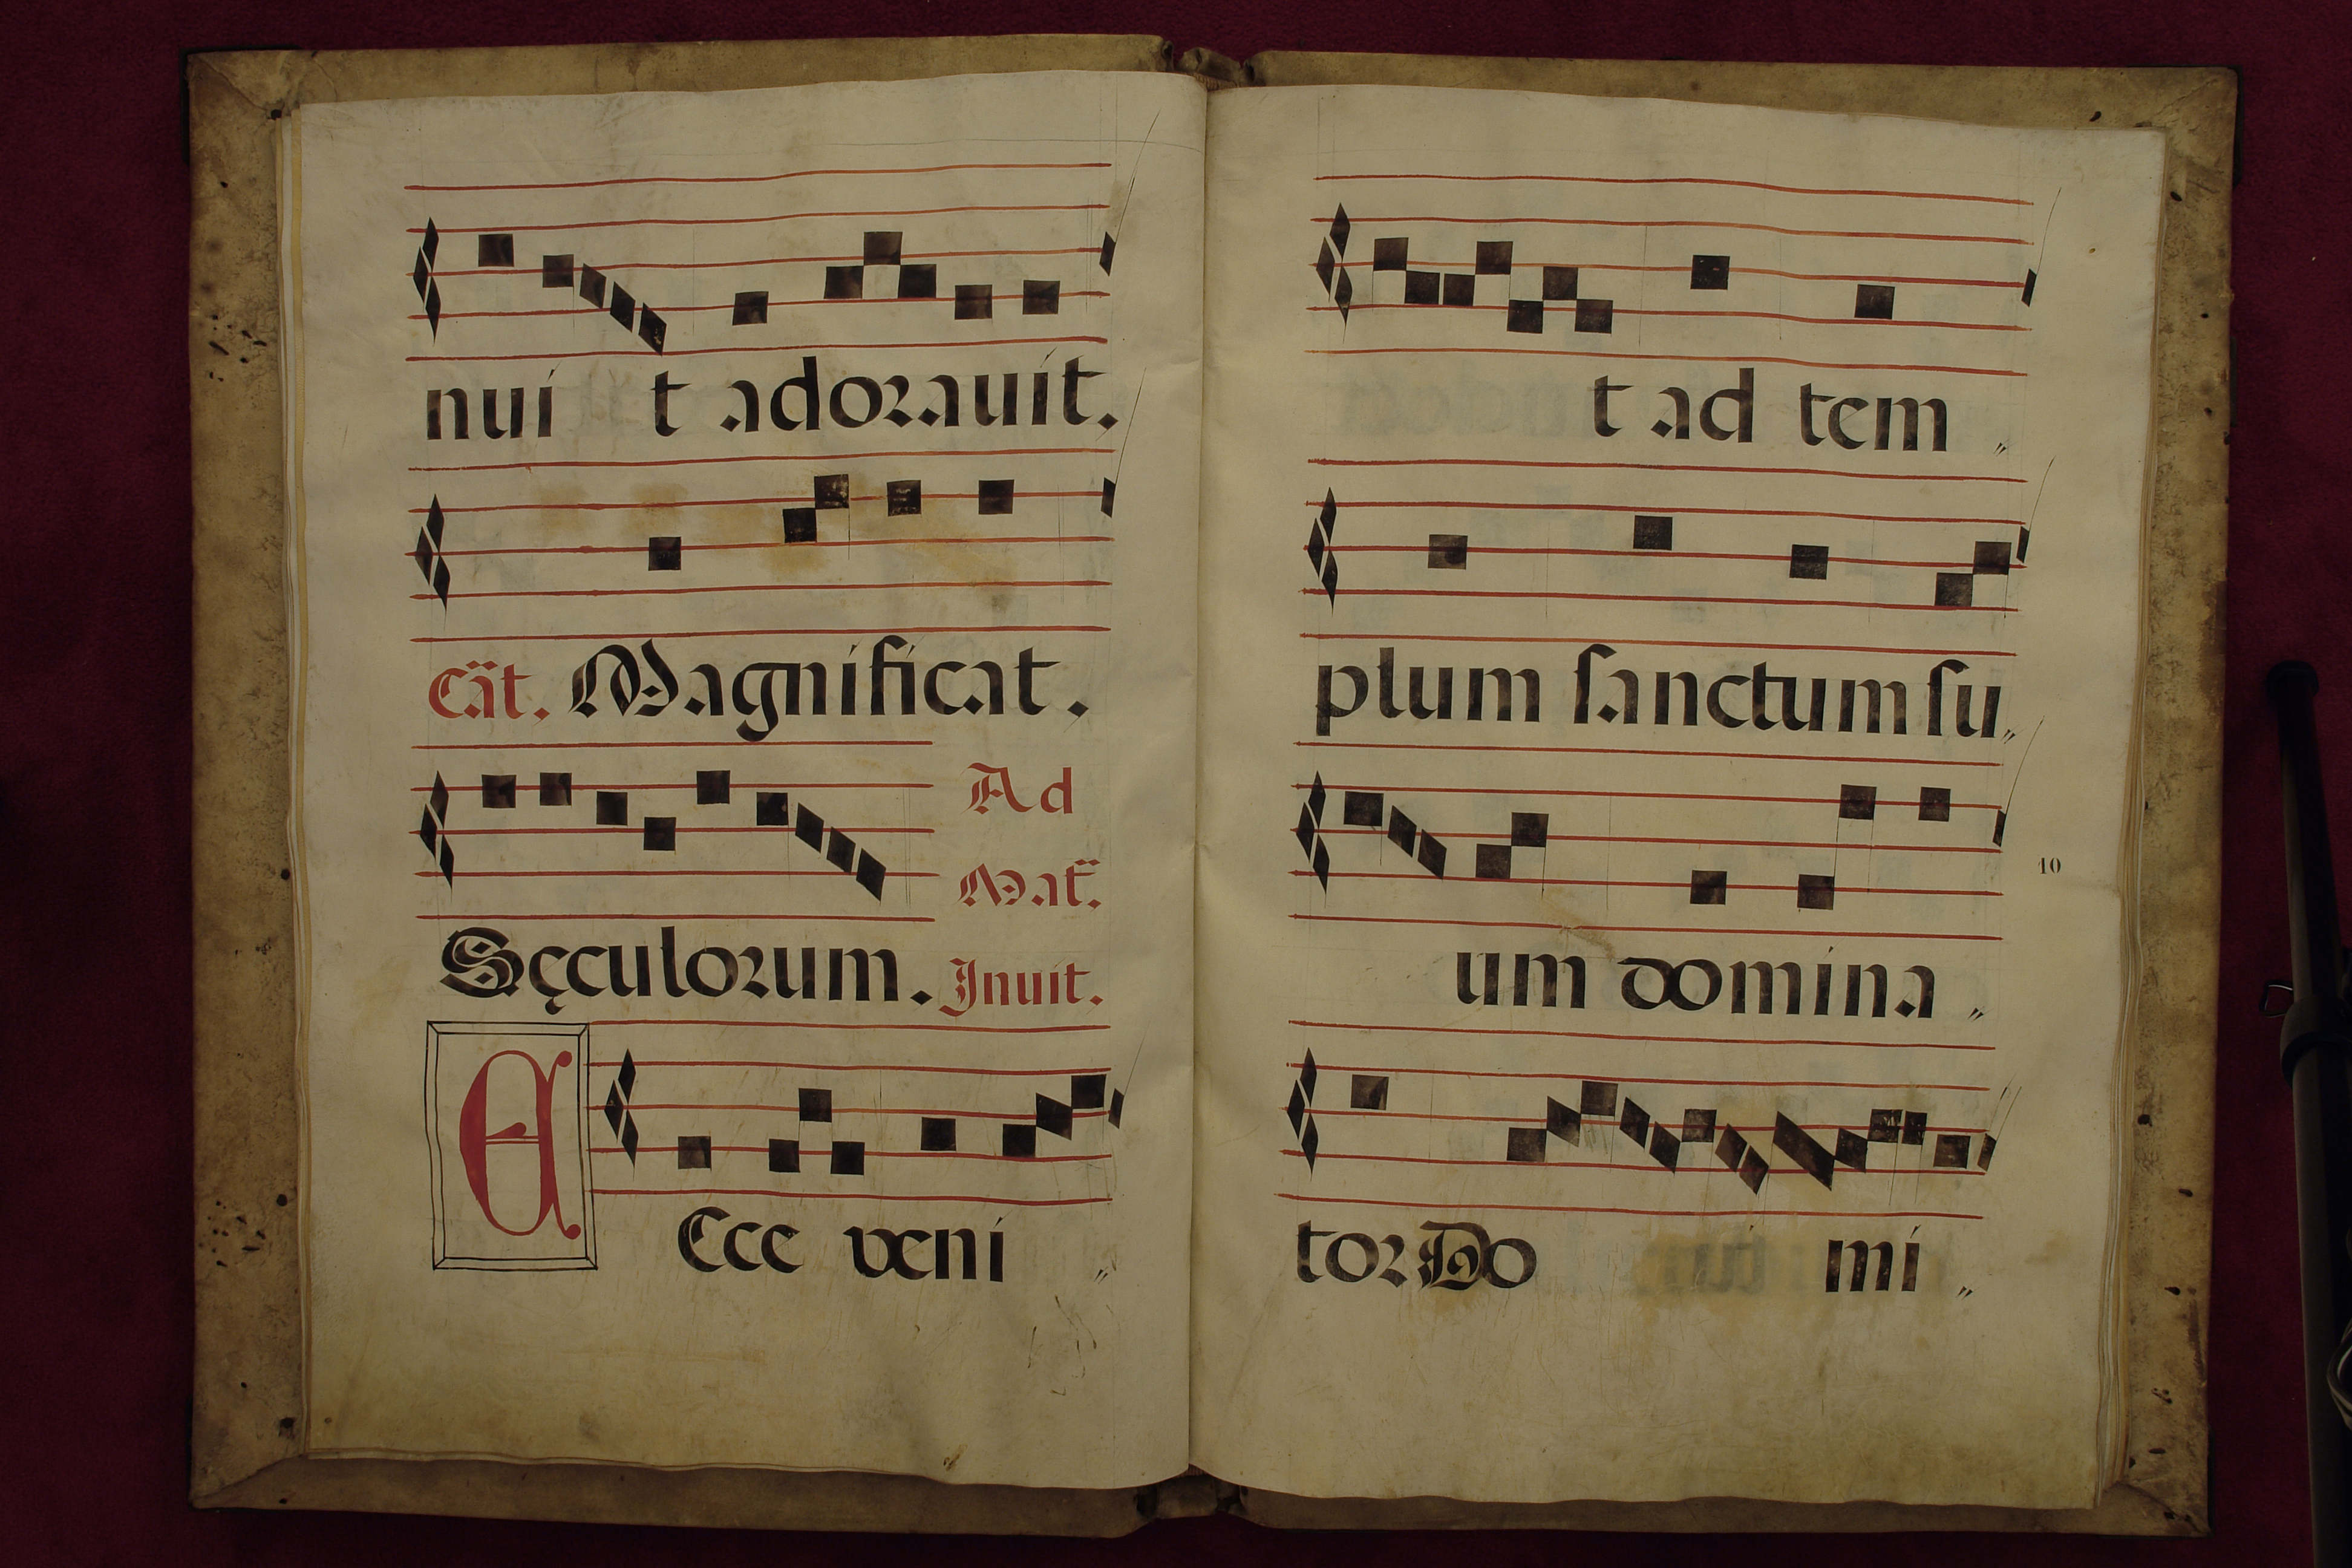 nui t adorauit.
Cãt. Magnificat.
Ad
Mat̃.
Sęculorum. Inuit.
E
Ecce veni
t ad tem
plum sanctum su
10
um domina
tor Do mi